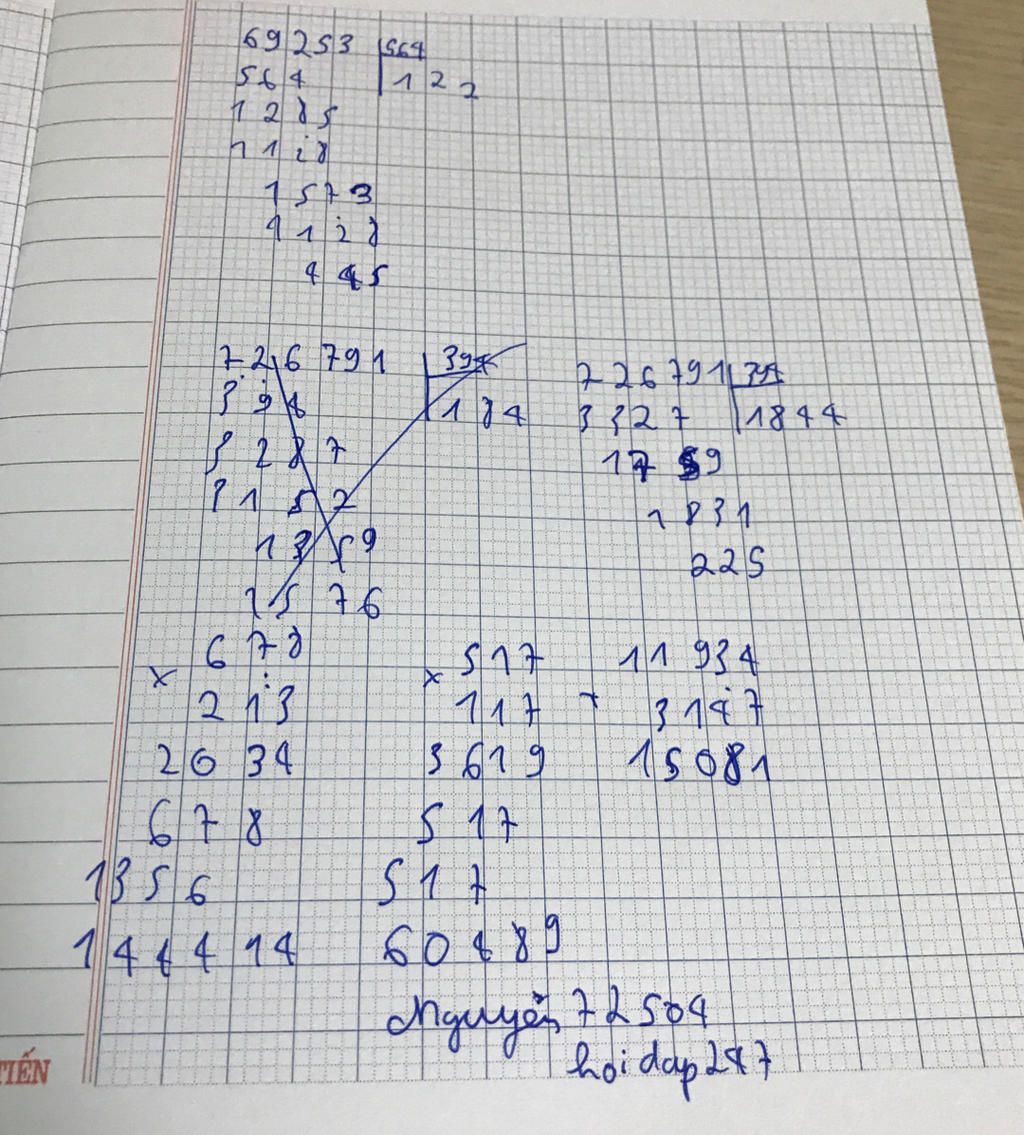 69253 564
564 122
1285
1128
1573
1128
445
726791 394
394 184
3287
3152
1359
1576
226791 394
3327 1844
1759
1831
225
678
× 213
2034
678
1356
144414
517
× 117
3619
517
517
60489
11934
+ 3147
15081
Nguyễn 72504
hoidap247
TIẾN